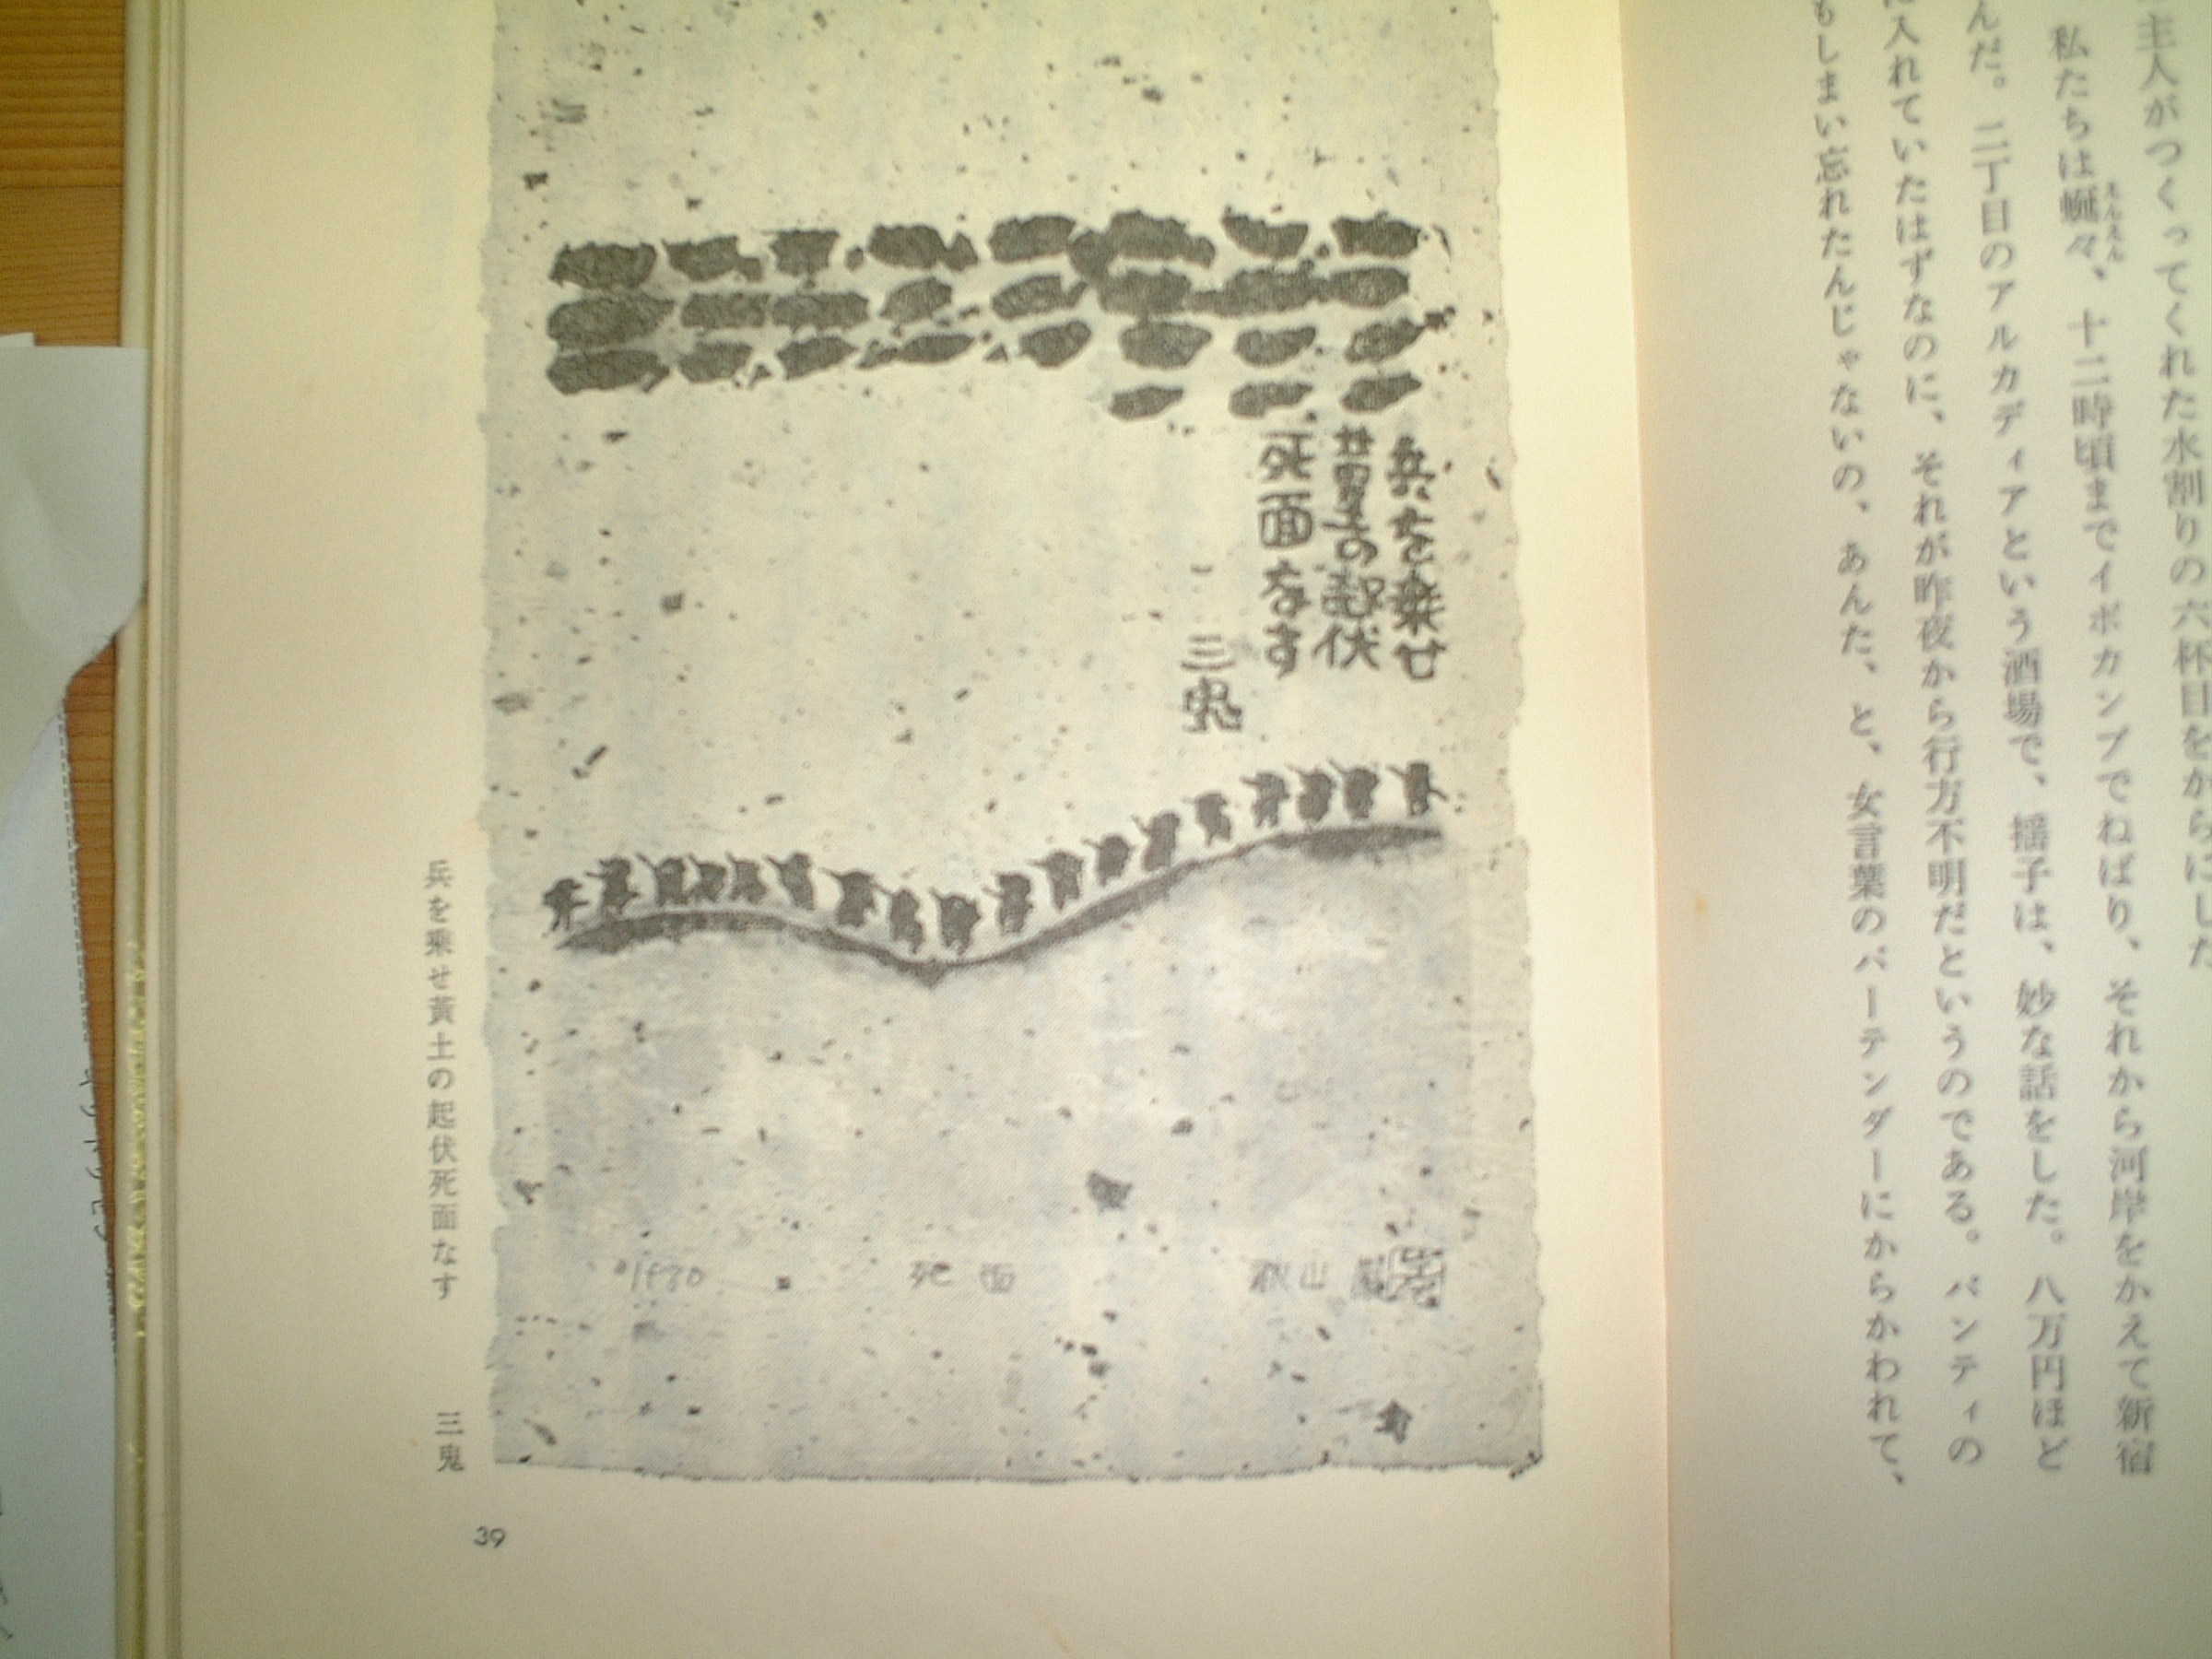 主人がつくってくれた水割りの六杯目をからにした
私たちは蜿々、十二時頃までイボカンプでねばり、それから河岸をかえて新宿
えんえん
んだ。二丁目のアルカディアという酒場で、揺子は、妙な話をした。八万円ほど
に入れていたはずなのに、それが昨夜から行方不明だというのである。パンティの
もしまい忘れたんじゃないの、あんた、と、女言葉のバーテンダーにからかわれて、
兵を乗せ
黄土の起伏
死面なす
三鬼
1980 死面 秋山
兵を乗せ黃土の起伏死面なす 三鬼
39